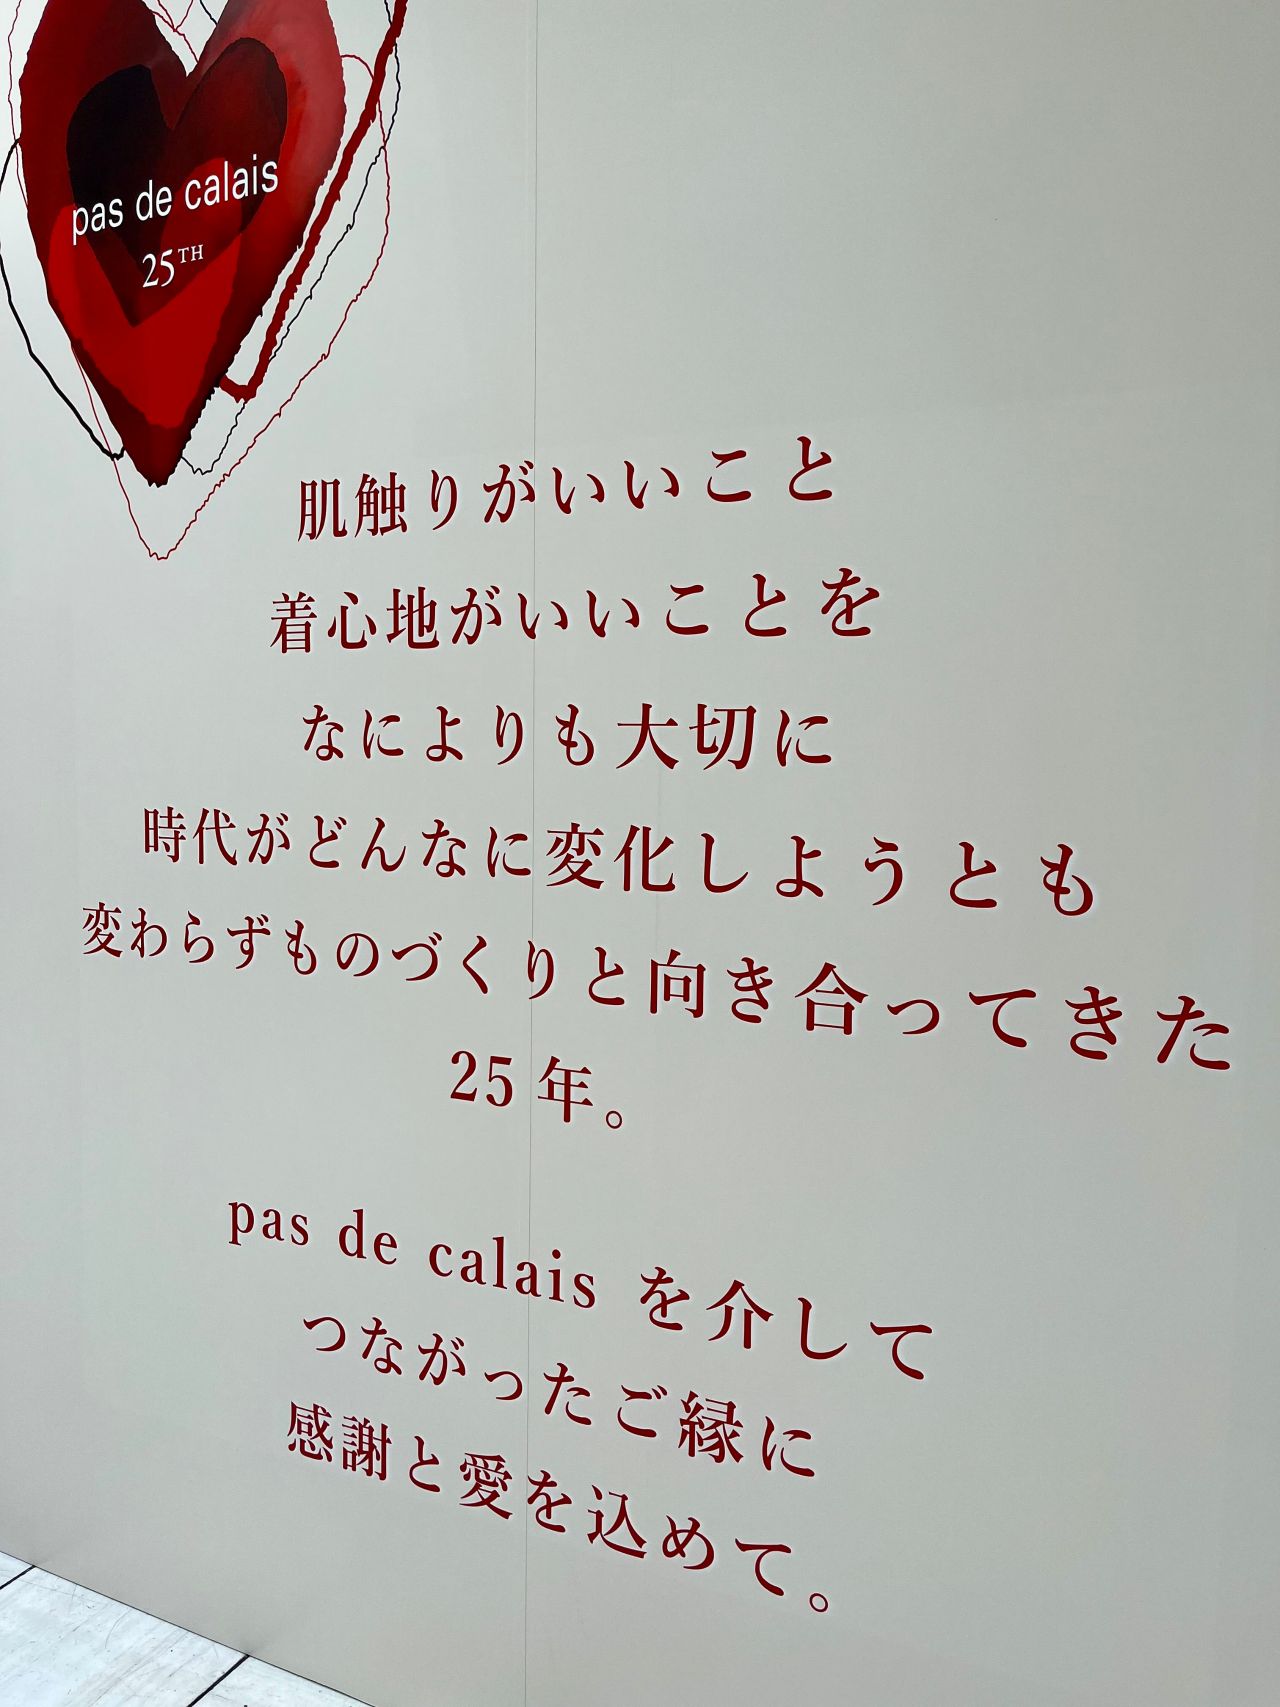 pas de calais
25TH
肌触りがいいこと
着心地がいいことを
なによりも大切に
時代がどんなに変化しようとも
変わらずものづくりと向き合ってきた
25年。
pas de calais を介して
つながったご縁に
感謝と愛を込めて。